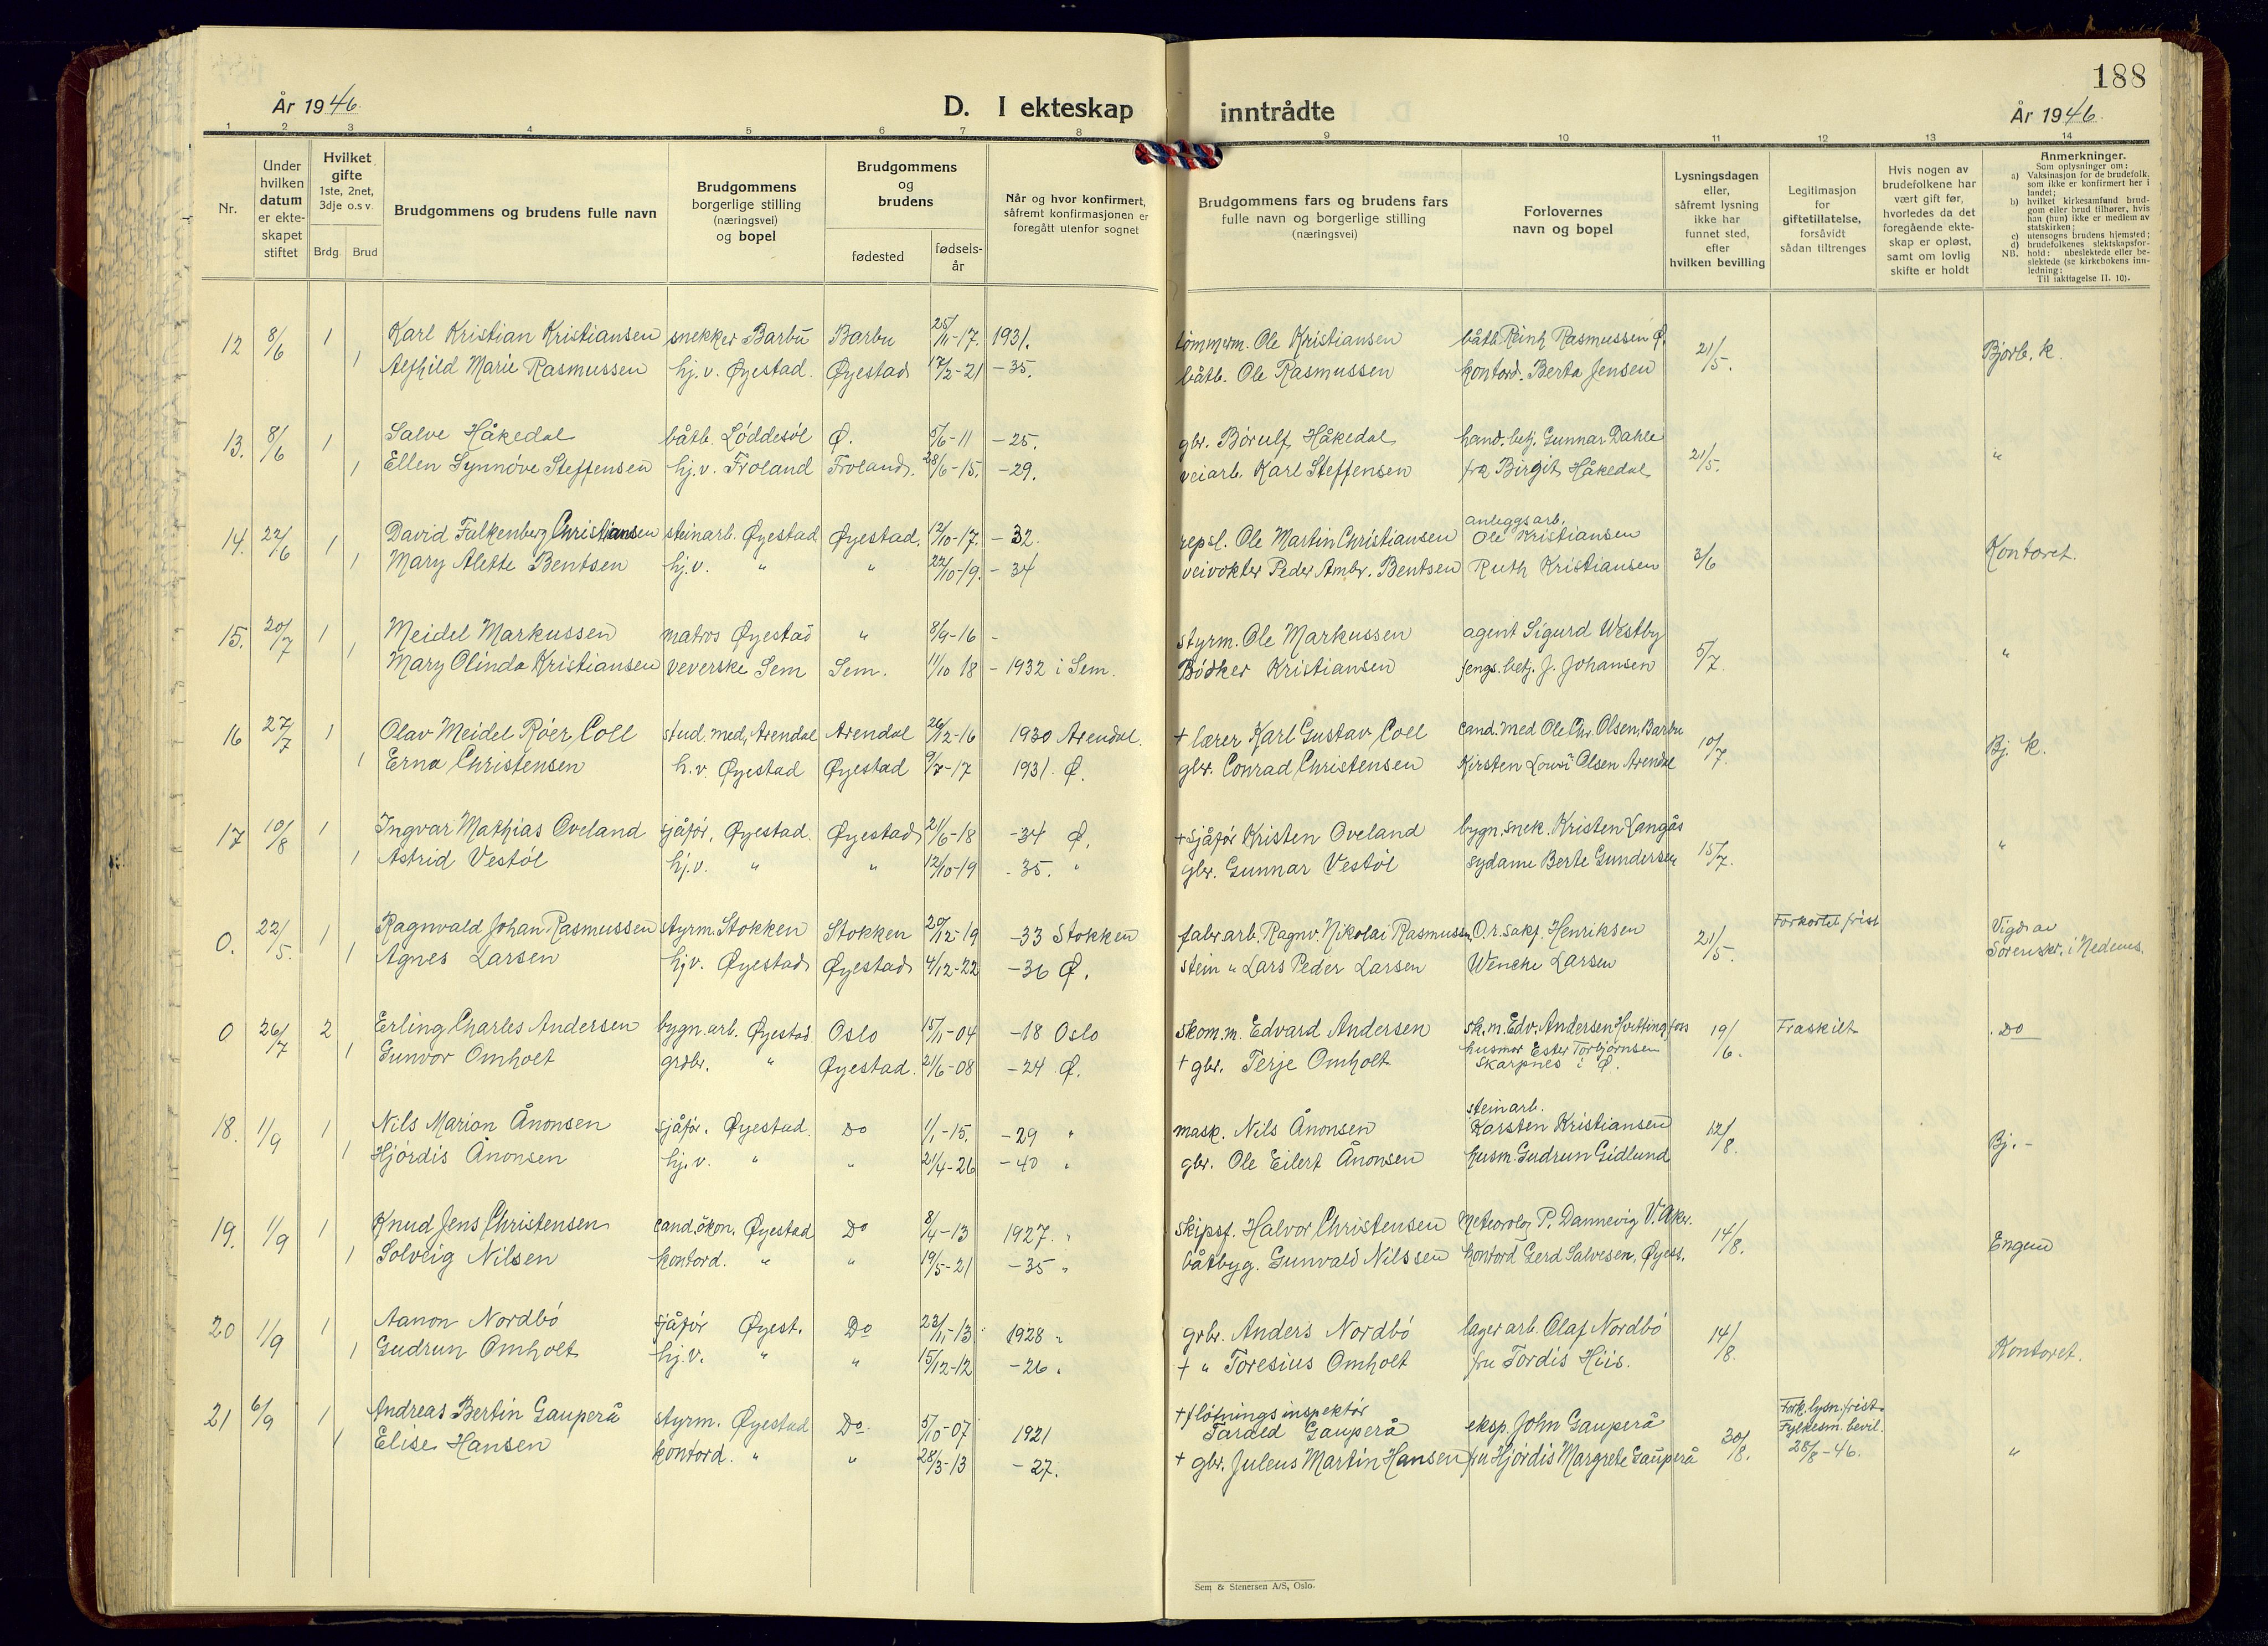 188
År 1946.
D. I ekteskap inntrådte
År 1946.
1 2 3 4 5 6 7 8 9 10 11 12 13 14
Nr.
Under hvilken datum er ekteskapet stiftet
Hvilket gifte 1ste, 2net, 3dje o.s v.
Brdg. Brud
Brudgommens og brudens fulle navn
Brudgommens borgerlige stilling (næringsvei) og bopel
Brudgommens og brudens
fødested
fødsels-år
Når og hvor konfirmert, såfremt konfirmasjonen er foregått utenfor sognet
Brudgommens fars og brudens fars fulle navn og borgerlige stilling (næringsvei)
Forlovernes navn og bopel
Lysningsdagen eller, såfremt lysning ikke har funnet sted, efter hvilken bevilling
Legitimasjon for giftetillatelse, forsåvidt sådan tiltrenges
Hvis nogen av brudefolkene har vært gift før, hvorledes da det foregående ekteskap er opløst, samt om lovlig skifte er holdt
Anmerkninger.
Som oplysninger om:
a) Vaksinasjon for de brudefolk. som ikke er konfirmert her i landet;
b) hvilket kirkesamfund brudgom eller brud tilhører, hvis han (hun) ikke er medlem av statskirken;
c) utensogns brudens hjemsted;
d) brudefolkenes slektskapsforhold: ubeslektede eller beslektede (se kirkebokens innledning;
NB.
Til iakttagelse II. 10).
12 8/6 1 Karl Kristian Kristiansen snekker Barbu Barbu 25/11-17. 1931. tømmerm. Ole Kristiansen båtb. Reinh Rasmussen Ø. 21/5. Bjorb. k.
1 Alfhild Marie Rasmussen hj. v. Øyestad. Øyestad 17/2-21 -35. båtb. Ole Rasmussen kontord. Berta Jensen
13. 8/6 1 Salve Håkedal båtb. Løddesøl Ø. 5/6-11 -25. gbr. Børulf Håkedal hand. betj. Gunnar Dahle 21/5. "
1 Ellen Synnøve Steffensen hj. v. Froland Froland. 28/6-15. -29. veiarb. Karl Steffensen fra Birgit Håkedal
14. 22/6 1 David Falkenberg Christiansen steinarb. Øyestad Øyestad. 12/10-17. -32. repsl. Ole Martin Christiansen anleggsarb. Ole Kristiansen 3/6 Kontoret.
1 Mary Alette Bentsen hj. v. " " 22/10-19. -34 veivokter Peder Ambr. Bentsen Ruth Kristiansen
15. 20/7 1 Meidel Markussen matros Øyestad " 8/9-16 - styrm. Ole Markussen agent Sigurd Westby 5/7. "
1 Mary Olinda Kristiansen veverske Sem Sem. 11/10 18 - 1932 i Sem. Bødker Kristiansen fengs. betj. J. Johansen
16 27/7 1 Olav Meidel Röer Coll stud. med, Arendal Arendal 26/12-16 1930 Arendal. + lærer Karl Gustav Coll cand. med Ole Chr. Olsen, Barbu 10/7. Bj. k.
1 Erna Christensen h. v. Øyestad Øyestad 9/7-17 1931. Ø. gbr. Conrad Christensen Kirsten Olsen Arendal
17 10/8 1 Ingvar Mathias Oveland sjåfør, Øyestad. Øyestad 21/6-18 -34 Ø. + sjåfør Kristen Oveland bygn. snek. Kristen Langås 15/7. "
1 Astrid Vestøl hj. v. " " 12/10-19 -35. " gbr. Gunnar Vestøl sydame Berte Gundersen
0. 22/5. 1 Ragnvald Johan Rasmussen styrm. Stokken Stokken 20/12-19 -33 Stokken fabr arb. Ragnv. Nikolai Rasmussen O. r. sakf. Henriksen 21/5. Forkortet frist Vigd av
1 Agnes Larsen hj v. Øyestad Øyestad 4/12-22 -36 Ø. stein " Lars Peder Larsen Wenche Larsen Sorenskr. i Nedenes.
0 26/7 2 Erling Charles Andersen bygn. arb. Øyestad. Oslo 15/11-04 -18 Oslo skom. m. Edvard Andersen sk. m. Edv. Andersen Hvittingfoss 19/6. Fraskilt Do
1 Gunvor Omholt grdbr. " Øyestad. 21/6-08 -24 Ø. + gbr. Terje Omholt husmor Ester Torbjørnsen Skarpnes i Ø.
18. 1/9 1 Nils Marion Ånonsen sjåfør. Øyestad. Do 1/1-15. -29 " mask. Nils Ånonsen steinarb. Karsten Kristiansen 12/8. Bj. -
1 Hjørdis Ånonsen hj. v. " " 21/4-26 -40 " gbr. Ole Eilert Ånonsen husm. Gudrun Gidlund
19. 1/9 1 Knud Jens Christensen cand. økon. Øyestad Do 8/4-13 1927. " skipsf. Halvor Christensen Meteorolog P. Dannevig V. Aker. 14/8. Engene
1 Solveig Nilsen kontord. " " 19/5-21 -35 " båtbyg. Gunvald Nilssen kontord Gerd Salvesen, Øyest.
20 1/9 1 Aanon Nordbø sjåfør Øyest. Do 23/11-13 1928 " grbr. Anders Nordbø lagerarb. Olaf Nordbø 14/8. Kontoret.
1 Gudrun Omholt hj. v. " " 15/12-12 -26 " + " Toresius Omholt fru Tordis Hiis.
21 6/9 1 Andreas Bertin Gauperå styrm. Øyestad Do. 5/10-07 1921 + fløtningsinspektør Tarald Gauperå eksp. John Gauperå 30/8. Fork. lysn. frist. Fylkesm. bevil. 28/8-46. "
1 Elise Hansen kontord. " " 28/3-13 -27. + gbr. Juleus Martin Hansen fru Hjørdis Margrete Gauperå
Sem & Stenersen A/S, Oslo.